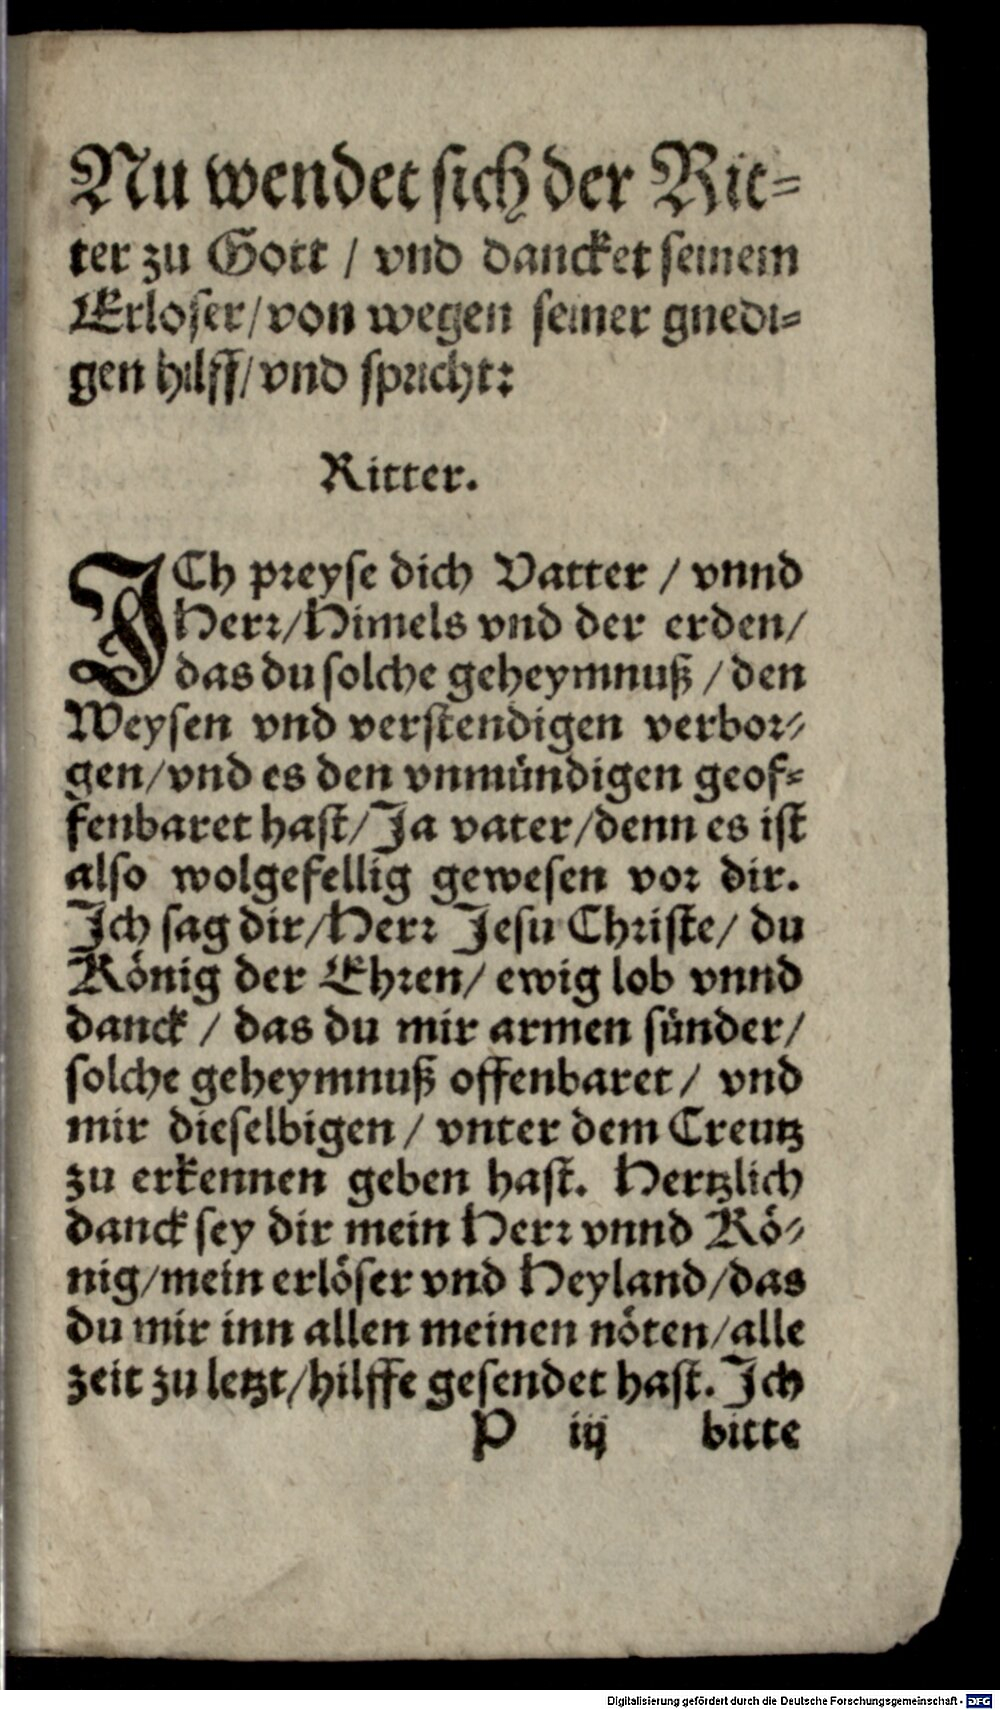 Nu wendet sich der Rit-
ter zu Gott / vnd dancket seinem
Erloser / von wegen seiner gnedi-
gen hilff / vnd spricht:
Ritter.
ICh preyse dich Vatter / vnnd
Herr / Himels vnd der erden /
das du solche geheymnuß / den
Weysen vnd verstendigen verbor-
gen / vnd es den vnmündigen geof-
fenbaret hast / Ja vater / denn es ist
also wolgefellig gewesen vor dir.
Ich sag dir / Herr Jesu Christe / du
König der Ehren / ewig lob vnnd
danck / das du mir armen sünder /
solche geheymnuß offenbaret / vnd
mir dieselbigen / vnter dem Creutz
zu erkennen geben hast. Hertzlich
danck sey dir mein Herr vnnd Kö-
nig / mein erlöser vnd Heyland / das
du mir inn allen meinen nöten / alle
zeit zu letzt / hilffe gesendet hast. Ich
P iij bitte
Digitalisierung gefördert durch die Deutsche Forschungsgemeinschaft - DFG